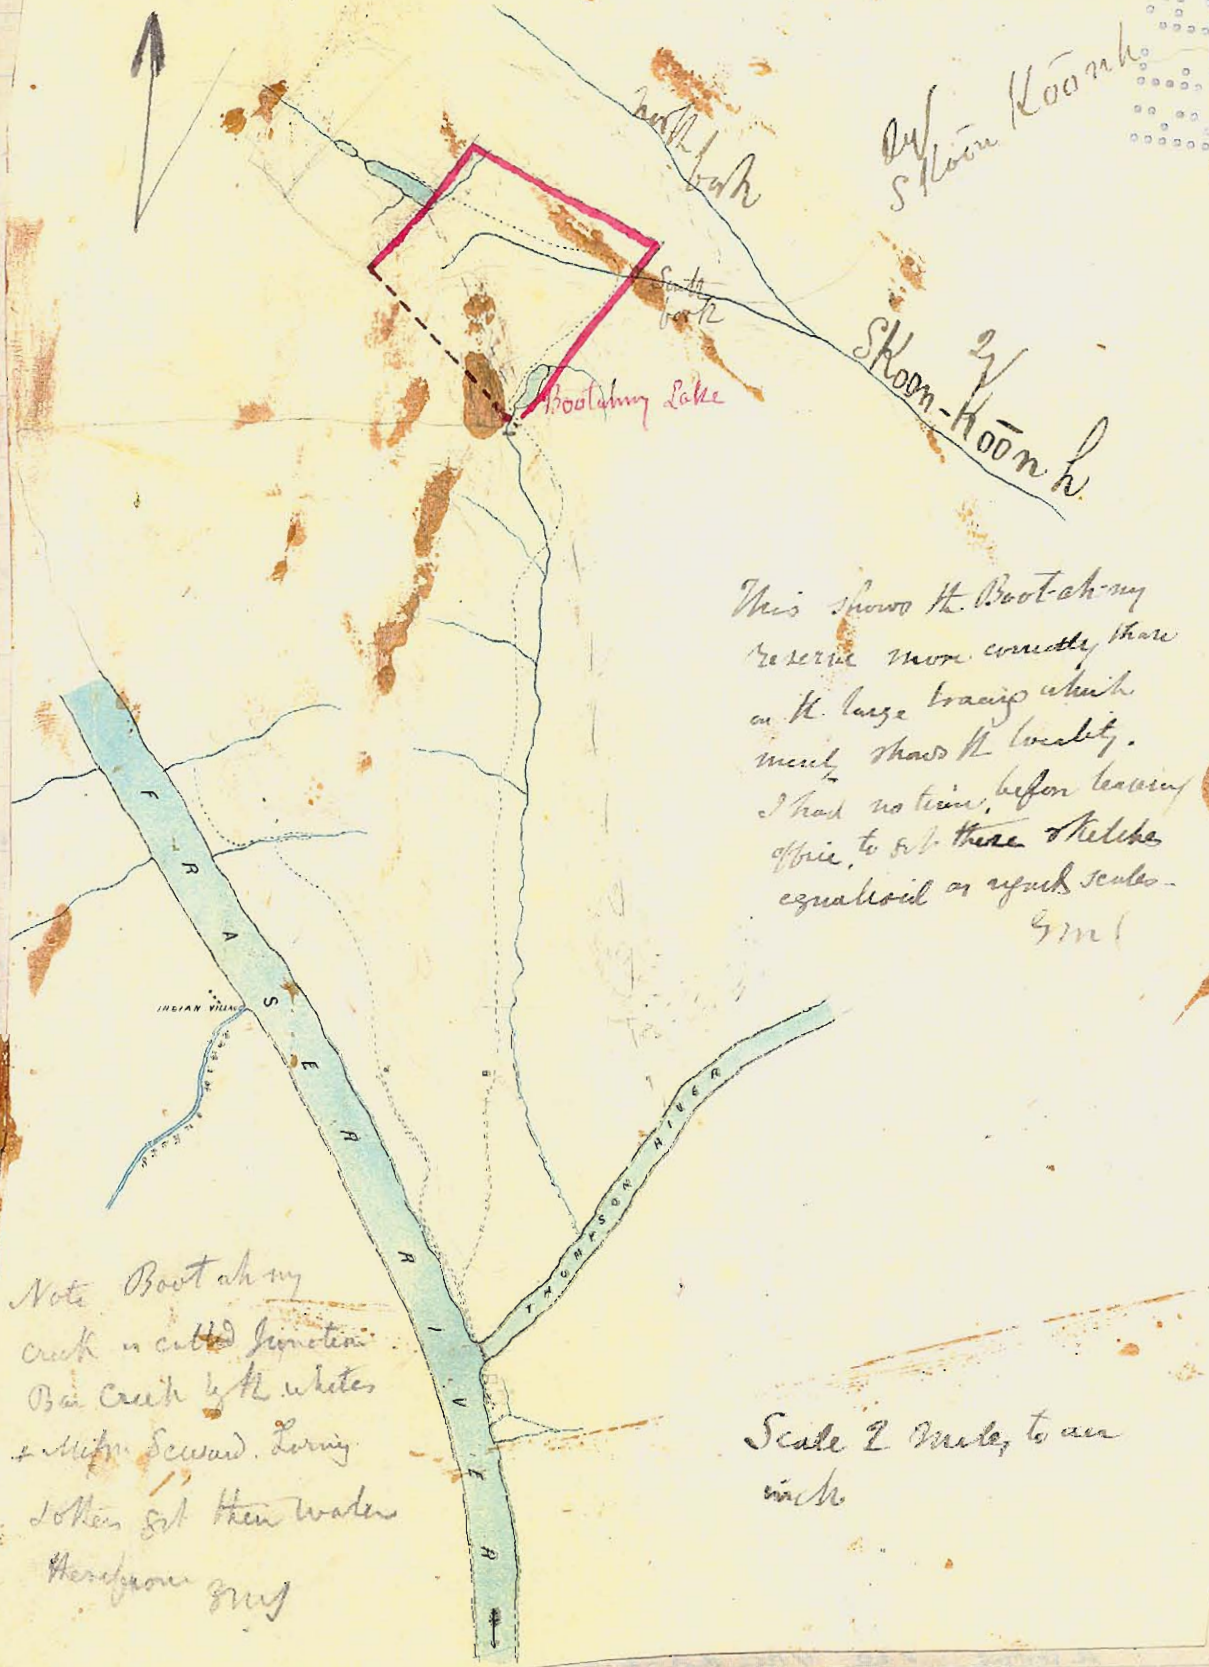 North
fork
2y/
SKoōn Kōōnh
South
fork
2y/
SKoon-Kōōnh
Bootahny Lake
This shows the Boot-ah-ny
reserve more correctly than
on the large tracing which
merely shows the locality.
I had no time, before leaving
office, to get these sketches
equalized as regards scales-
FRASER RIVER
INDIAN VILLAGE
THOMPSON RIVER
Note Boot ah ny
creek is called Junction
Bar Creek by the whites
+ Messrs Seward. Loring
& others get their water
therefrom
Scale 2 miles to an
inch